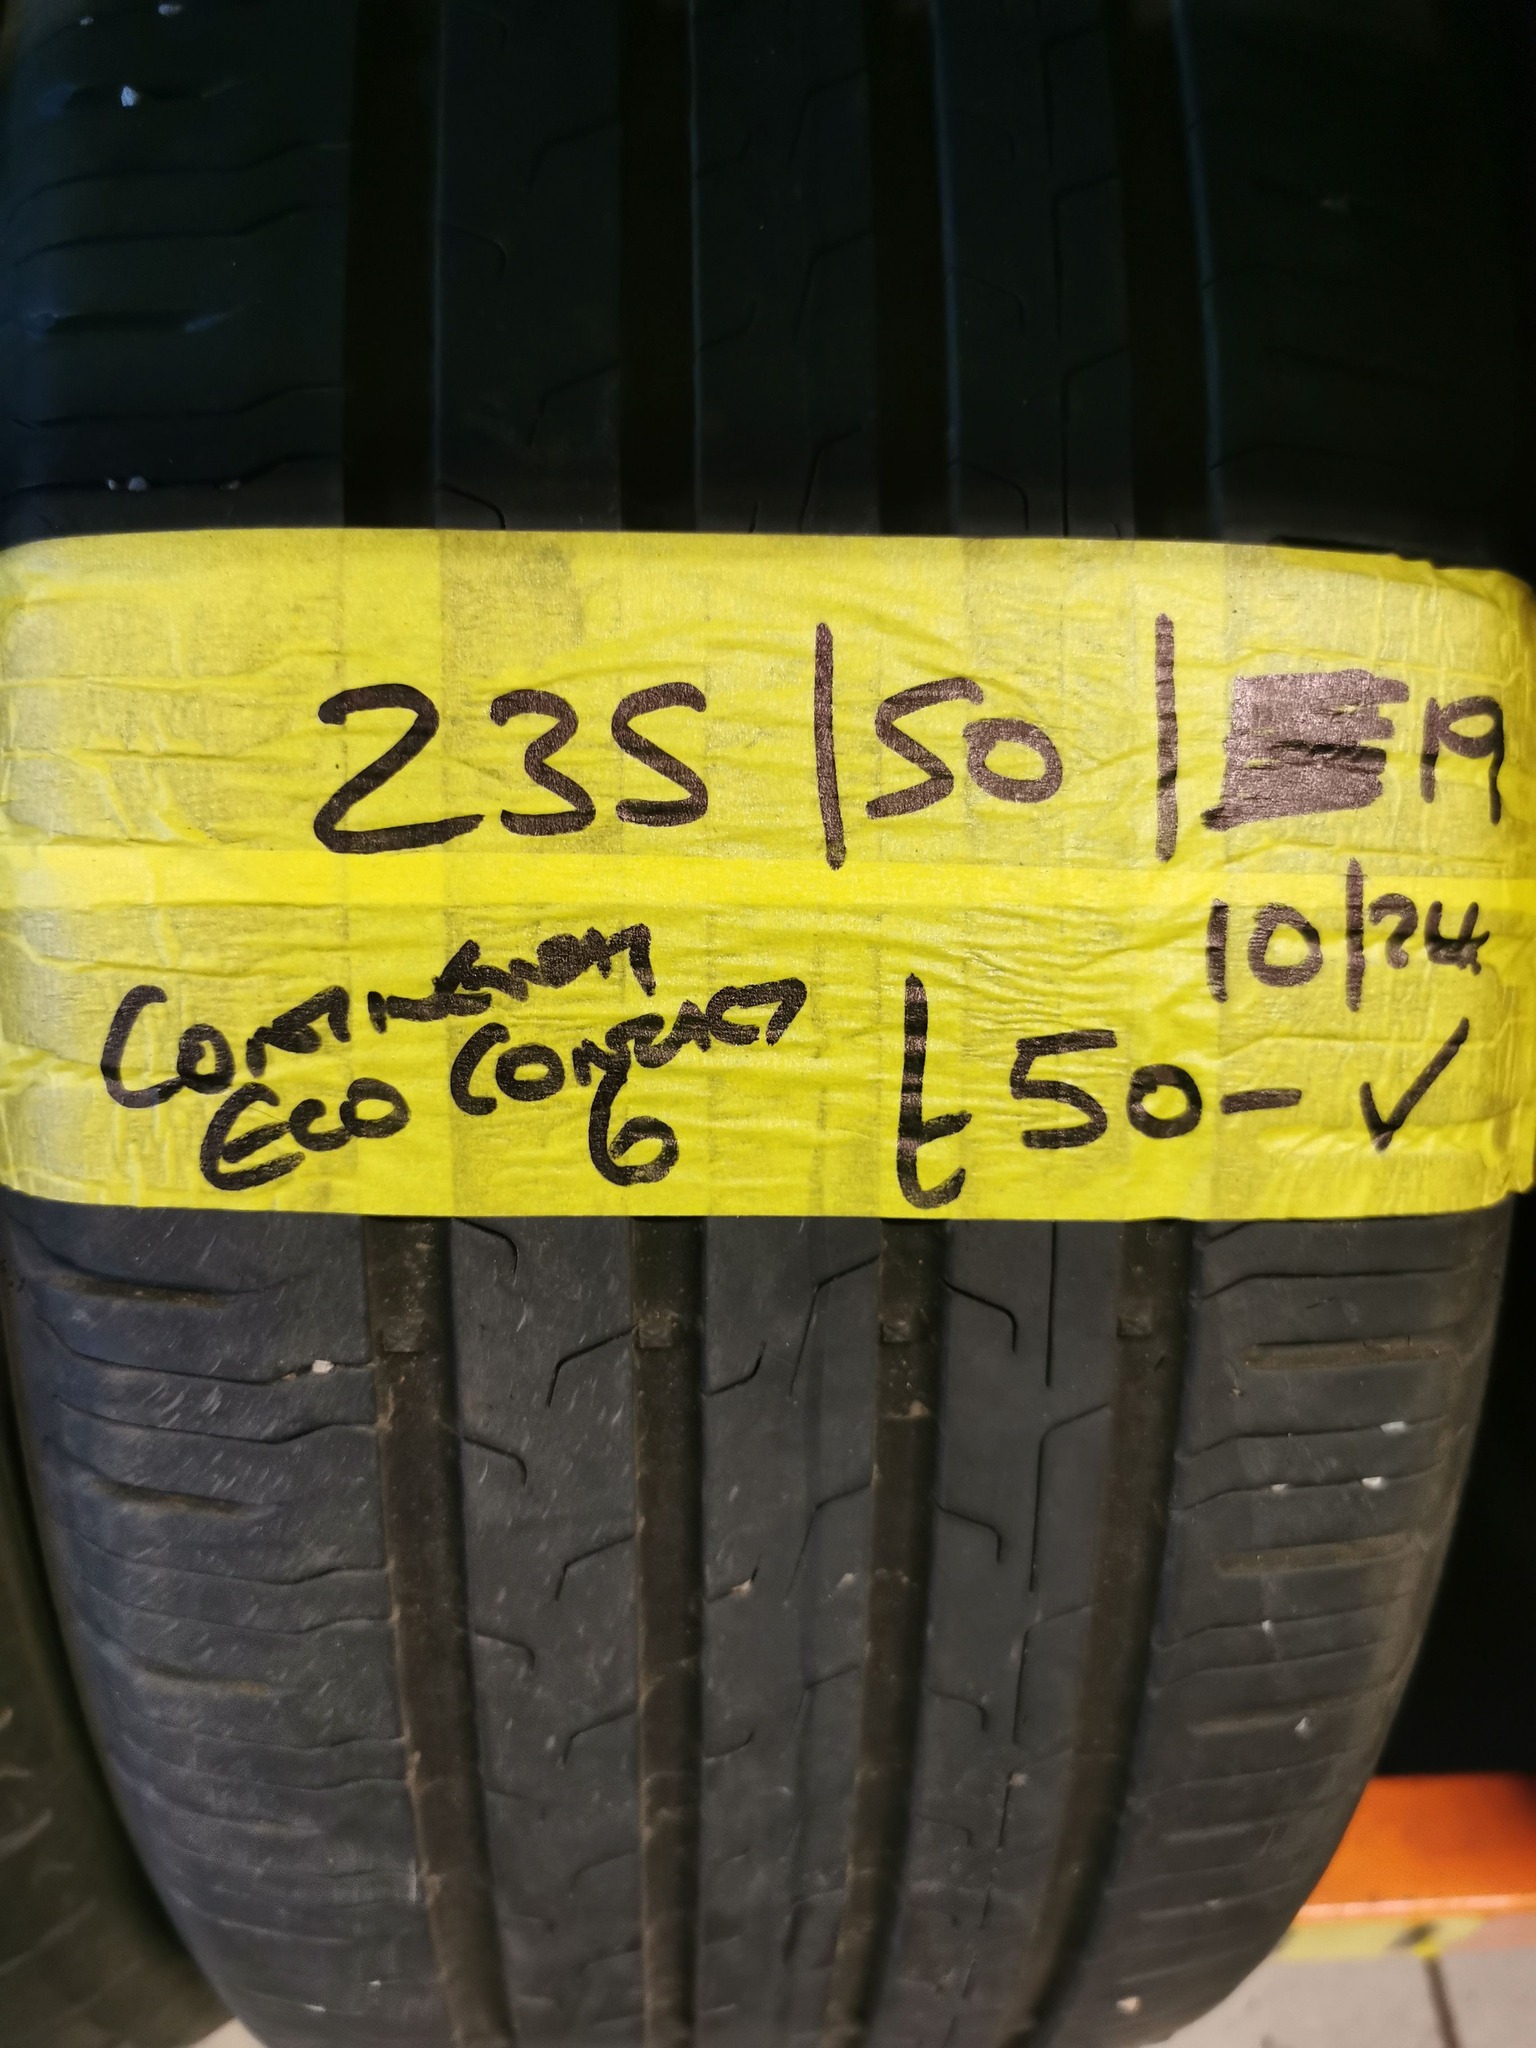 235/50/19
10/24
CONTINENTAL
ECO CONTACT
6
£50-✓